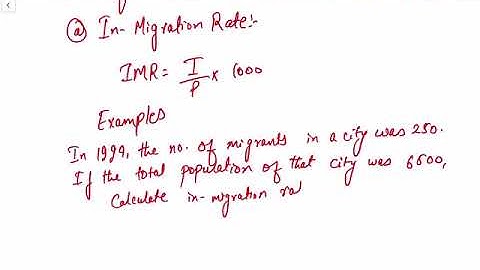 (a) In-Migration Rate:-
IMR = I/P x 1000
Examples
In 1994, the no. of migrants in a city was 250.
If the total population of that city was 6600,
Calculate in-migration ra